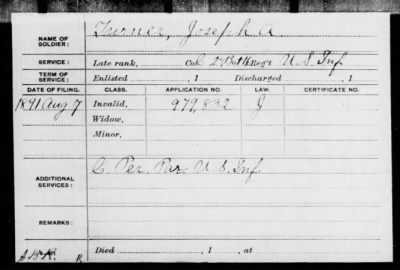 NAME OF SOLDIER: Turner, Joseph A.
SERVICE: Late rank, Co. 2 Batt 16 Reg't U.S. Inf
TERM OF SERVICE: Enlisted , 1 Discharged , 1
DATE OF FILING. CLASS. APPLICATION NO. LAW. CERTIFICATE NO.
1891 Aug 7 Invalid, 979,832 J
Widow,
Minor,
ADDITIONAL SERVICES: C. Per. Par. U S. Inf.
REMARKS:
Died , 1 , at
R